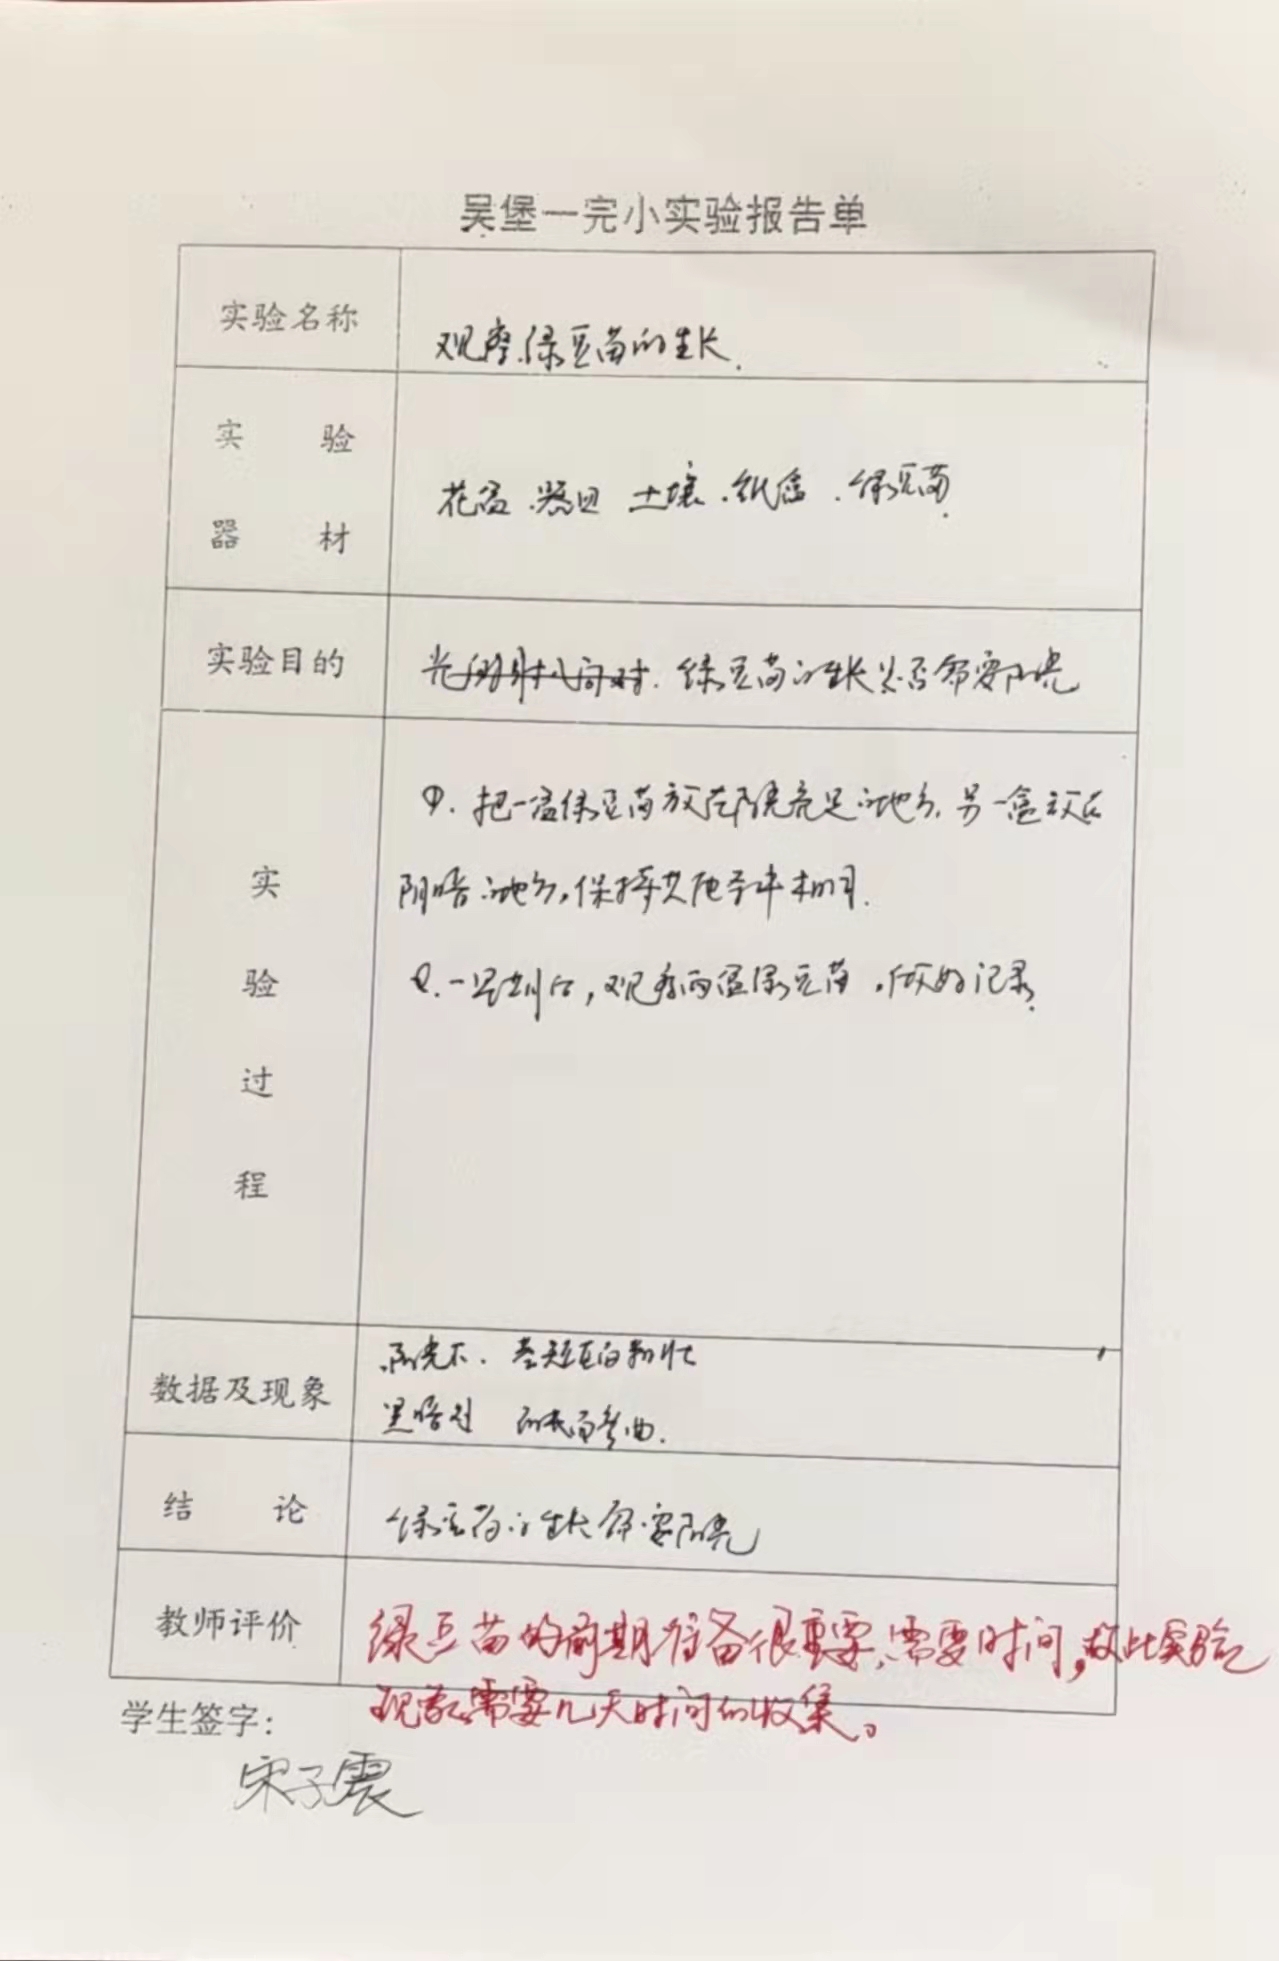 吴堡一完小实验报告单
实验名称
观察绿豆苗的生长.
实 验
器 材
花盆.器皿 土壤.纸盒.绿豆苗.
实验目的
绿豆苗的生长是否需要阳光
实
验
过
程
①.把一盆绿豆苗放在阳光充足的地方,另一盒放在
阴暗的地方,保持其他条件相同.
②.一星期后,观察两盆绿豆苗,做好记录.
数据及现象
阳光下.茎短直的粗壮
黑暗
结 论
绿豆苗的生长需要阳光
教师评价
绿豆苗的前期准备很重要,需要时间,故此实验
现象需要几天时间的收集。
学生签字:
宋子震